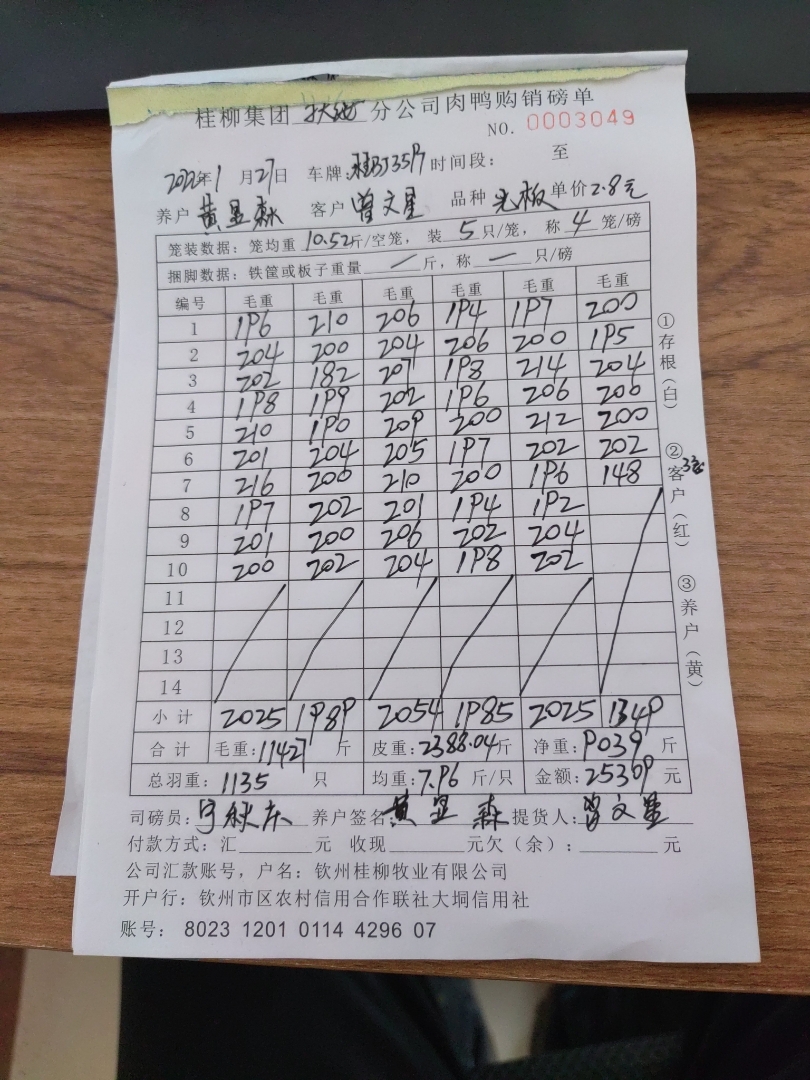 桂柳集团 扶绥 分公司肉鸭购销磅单
NO. 0003049
2022年1月27日 车牌: 时间段: 至
养户 黄显森 客户 曾文星 品种 光板 单价2.8元
笼装数据:笼均重 10.52斤/空笼,装 5 只/笼,称 4 笼/磅
捆脚数据:铁筐或板子重量 / 斤,称 一 只/磅
编号 毛重 毛重 毛重 毛重 毛重 毛重
1 196 210 206 194 197 200
2 204 200 204 206 200 195
3 202 182 207 198 214 204
4 198 199 202 196 206 200
5 210 190 209 200 212 200
6 201 204 205 197 202 202
7 216 200 210 200 196 148
8 197 202 201 194 192
9 201 200 206 202 204
10 200 202 204 198 202
11
12
13
14
小计 2025 1989 2054 1985 2025 1349
合计 毛重:11427斤 皮重:2388.04斤 净重:9039斤
总羽重:1135 只 均重:7.96斤/只 金额:25309元
司磅员: 养户签名:黄显森 提货人:曾文星
付款方式:汇 元 收现 元欠(余): 元
公司汇款账号,户名:钦州桂柳牧业有限公司
开户行:钦州市区农村信用合作联社大垌信用社
账号: 8023 1201 0114 4296 07
①存根(白)
②客户(红)
③养户(黄)